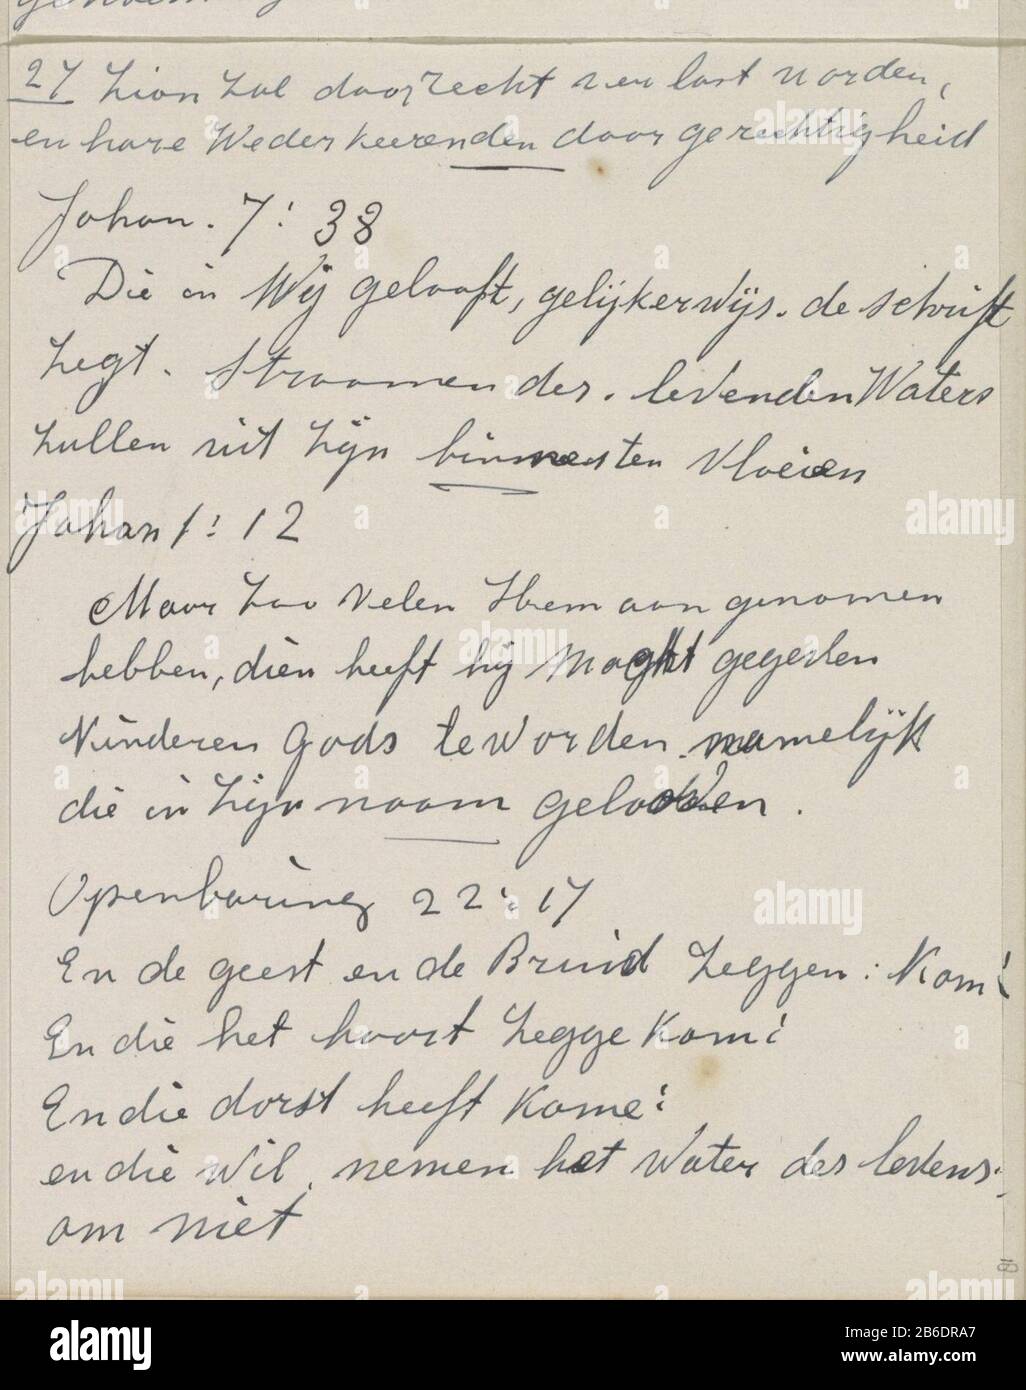 27 Zion zal door recht verlost worden,
en hare Wederkeerenden door gerechtigheid
Johan. 7: 38
Die in Mij gelooft, gelijkerwijs. de schrift
zegt. Stroomen des. levenden Waters
zullen uit zijn binnensten Vloeien
Johan 1: 12
Maar zoo Velen Hem aangenomen
hebben, dien heeft hij Macht gegeven
Kinderen Gods te worden. namelijk
die in zijn naam gelooven.
Openbaring 22: 17
En de geest en de Bruid zeggen: Kom!
En die het hoort zegge Kom!
En die dorst heeft Kome!
en die Wil, nemen het Water des levens.
om niet
alamy
Image ID: 2B6DRA7
www.alamy.com